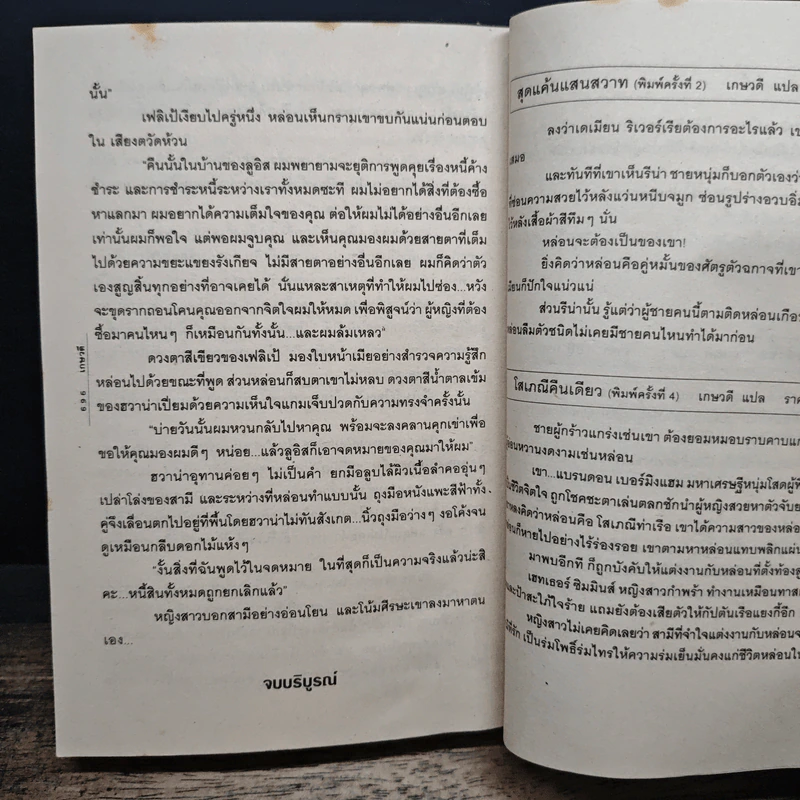 นั้น"
เฟลิเป้เงียบไปครู่หนึ่ง หล่อนเห็นกรามเขาขบกันแน่นก่อนตอบ
ใน เสียงตวัดห้วน
"คืนนั้นในบ้านของลูอิส ผมพยายามจะยุติการพูดคุยเรื่องหนี้ค้าง
ชำระ และการชำระหนี้ระหว่างเราทั้งหมดซะที ผมไม่อยากได้สิ่งที่ต้องซื้อ
หาแลกมา ผมอยากได้ความเต็มใจของคุณ ต่อให้ผมไม่ได้อย่างอื่นอีกเลย
เท่านั้นผมก็พอใจ แต่พอผมจูบคุณ และเห็นคุณมองผมด้วยสายตาที่เต็ม
ไปด้วยความขยะแขยงรังเกียจ ไม่มีสายตาอย่างอื่นอีกเลย ผมก็คิดว่าตัว
เองสูญสิ้นทุกอย่างที่อาจเคยได้ นั่นแหละสาเหตุที่ทำให้ผมไปซ่อง...หวัง
จะขุดรากถอนโคนคุณออกจากจิตใจผมให้หมด เพื่อพิสูจน์ว่า ผู้หญิงที่ต้อง
ซื้อมาคนไหนๆ ก็เหมือนกันทั้งนั้น...และผมล้มเหลว"
ดวงตาสีเขียวของเฟลิเป้ มองใบหน้าเมียอย่างสำรวจความรู้สึก
หล่อนไปด้วยขณะที่พูด ส่วนหล่อนก็สบตาเขาไม่หลบ ดวงตาสีน้ำตาลเข้ม
ของฮวาน่าเปี่ยมด้วยความเห็นใจแกมเจ็บปวดกับความทรงจำครั้งนั้น
"บ่ายวันนั้นผมหวนกลับไปหาคุณ พร้อมจะลงคลานคุกเข่าเพื่อ
ขอให้คุณมองผมดีๆ หน่อย...แล้วลูอิสก็เอาจดหมายของคุณมาให้ผม"
ฮวาน่าอุทานค่อยๆ ไม่เป็นคำ ยกมือลูบไล้ผิวเนื้อลำคออุ่นๆ
เปล่าโล่งของสามี และระหว่างที่หล่อนทำแบบนั้น ถุงมือหนังแพะสีฟ้าทั้ง
คู่จึงเลื่อนตกไปอยู่ที่พื้นโดยฮวาน่าไม่ทันสังเกต...นิ้วถุงมือว่างๆ งอโค้งจน
ดูเหมือนกลีบดอกไม้แห้งๆ
"งั้นสิ่งที่ฉันพูดไว้ในจดหมาย ในที่สุดก็เป็นความจริงแล้วน่ะสิ
คะ...หนี้สินทั้งหมดถูกยกเลิกแล้ว"
หญิงสาวบอกสามีอย่างอ่อนโยน และโน้มศีรษะเขาลงมาหาตน
เอง...
จบบริบูรณ์
เกษวดี
สุดแค้นแสนสวาท (พิมพ์ครั้งที่ 2) เกษวดี แปล
ลงว่าเดเมียน ริเวอร์เรียต้องการอะไรแล้ว
เสมอ
และทันทีที่เขาเห็นรีน่า ชายหนุ่มก็บอกตัวเองว่า
ที่ซ่อนความสวยไว้หลังแว่นหนีบจมูก ซ่อนรูปร่างอวบอิ่ม
ไว้หลังเสื้อผ้าสีทึมๆ นั่น
หล่อนจะต้องเป็นของเขา!
ยิ่งคิดว่าหล่อนคือคู่หมั้นของศัตรูตัวฉกาจที่เขา
เมียนก็ปักใจแน่วแน่
ส่วนรีน่านั้น รู้แต่ว่าผู้ชายคนนี้ตามติดหล่อนเกือบ
หล่อนลืมตัวชนิดไม่เคยมีชายคนไหนทำได้มาก่อน
โสเภณีคืนเดียว (พิมพ์ครั้งที่ 4) เกษวดี แปล
ชายผู้กร้าวแกร่งเช่นเขา ต้องยอมหมอบราบคาบแก้ว
อ่อนหวานงดงามเช่นหล่อน
เขา...แบรนดอน เบอร์มิงแฮม มหาเศรษฐีหนุ่มโสดผู้
ชีวิตจิตใจ ถูกโชคชะตาเล่นตลกชักนำผู้หญิงสวยหาตัวจับย
าหลงคิดว่าหล่อนคือ โสเภณีท่าเรือ เขาได้ความสาวของหล่อน
อนก็หายไปอย่างไร้ร่องรอย เขาตามหาหล่อนแทบพลิกแผ่น
มาพบอีกที ก็ถูกบังคับให้แต่งงานกับหล่อนที่ตั้งท้อง
เฮทเธอร์ ซิมมินส์ หญิงสาวกำพร้า ทำงานเหมือนทาส
และป้าสะใภ้ใจร้าย แถมยังต้องเสียตัวให้กัปตันเรือแยงกี้อีก
หญิงสาวไม่เคยคิดเลยว่า สามีที่จำใจแต่งงานกับหล่อน
ที่รัก เป็นร่มโพธิ์ร่มไทรให้ความร่มเย็นมั่นคงแก่ชีวิตหล่อน